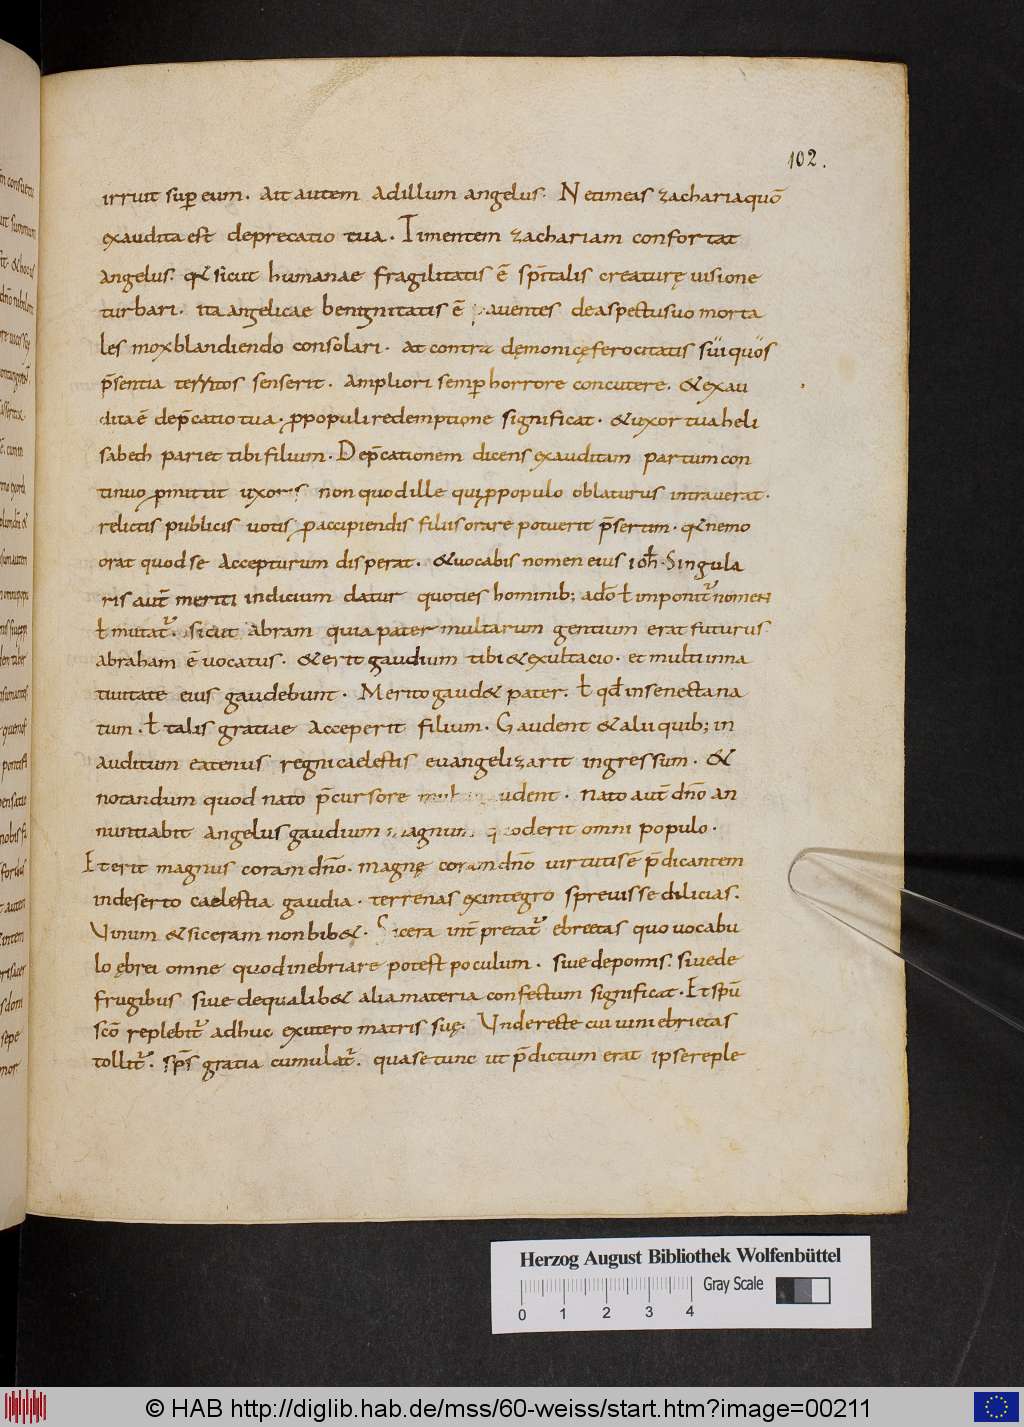 102.
irruit sup̱ eum. Ait autem adillum angelus. Netimeas zachariaquō
exaudita est deprecatio tua. Timentem zachariam confortat
angelus. qꝛ sicut humanae fragilitatis ē sp̄italis creaturę uisione
turbari. ita angelicae benignitatis ē pauentes deaspectusuo morta
les moxblandiendo consolari. at contra dęmonicęferocitatis suiquos
p̄sentia territos senserit. ampliori semp̱ horrore concutere. &exau
dita ē dep̄catio tua. ꝓpopuliredemptione significat. &uxor tuaheli
sabeth pariet tibifilium. Dep̄cationem dicens exauditam partumcon
tinuo ꝓmittit uxoris nonquodille quiꝓpopulo oblaturus intrauerat.
relictis publicis uotis ꝓaccipiendis filiisorare potuerit p̄sertim. qꝛnemo
orat quodse accepturum disperat. &uocabis nomen eius ioħ. Singula
ris aut̄ meriti indicium datur quoties hominib; ado̅ ł imponit̄nomen
ł mutat̄. sicut abram quiapater multarum gentium erat futurus
abraham ē uocatus. &erit gaudium tibi&exultacio. et multiinna
tiuitate eius gaudebunt. Meritogaud& pater. ł qd̄ insenectana
tum. ł talis gratiae acceperit filium. Gaudent &alii quib; in
auditum eatenus regnicaelestis euangelizarit ingressum. &
notandum quod nato p̄cursore mul udent. nato aut̄ dn̄o an
nuntiabit angelus gaudium magnum quoderit omni populo.
Eterit magnus coram dn̄o. magnę coram dn̄o uirtutis ē p̄dicantem
indeserto caelestia gaudia. terrenas exintegro spreuisse dilicias.
Uinum &siceram nonbib&. Sicera int̄pretat̄ ebreetas quouocabu
lo ębrei omne quodinebriare potest poculum. siue depomis. siuede
frugibus siue dequalib& aliamateria confectum significat. Et spū
scō replebit̄ adhuc exutero matris suę. Underecte cui uiniebrietas
tollit̄. sp̄s gratia cumulat̄. quasetunc ut p̄dictum erat ipsereple
Herzog August Bibliothek Wolfenbüttel
Gray Scale
0 1 2 3 4
© HAB http://diglib.hab.de/mss/60-weiss/start.htm?image=00211